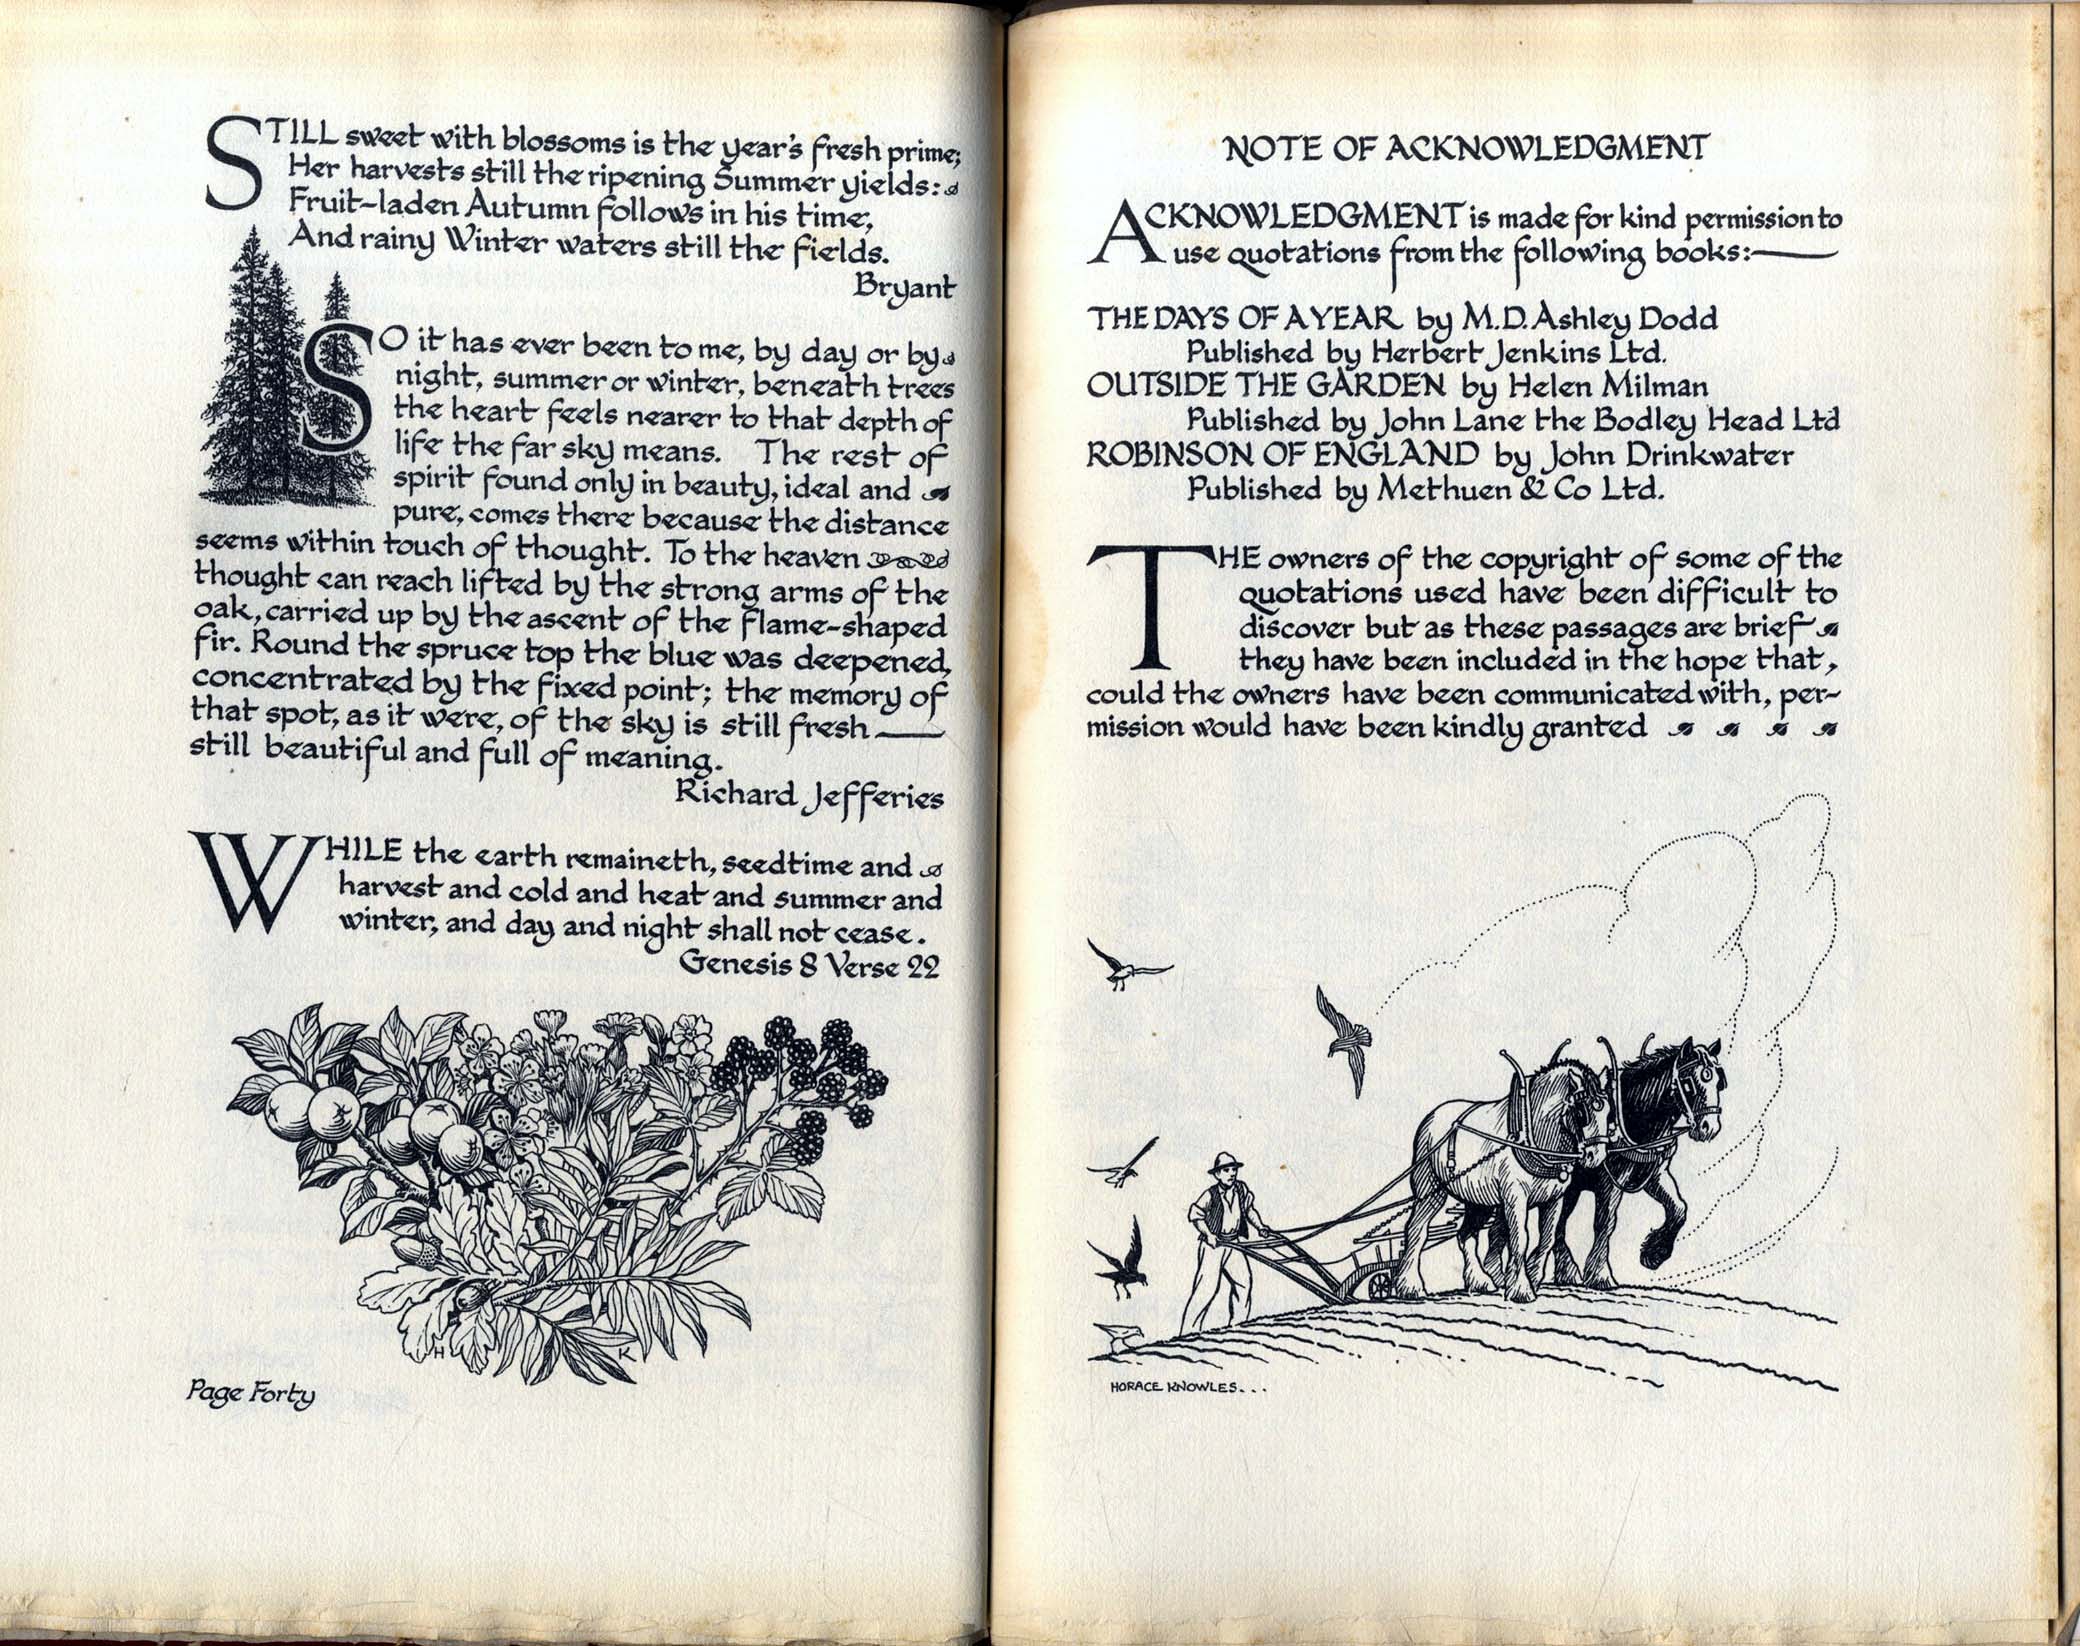 STILL sweet with blossoms is the year's fresh prime;
Her harvests still the ripening Summer yields:
Fruit-laden Autumn follows in his time,
And rainy Winter waters still the fields.
Bryant
SO it has ever been to me, by day or by
night, summer or winter, beneath trees
the heart feels nearer to that depth of
life the far sky means. The rest of
spirit found only in beauty, ideal and
pure, comes there because the distance
seems within touch of thought. To the heaven
thought can reach lifted by the strong arms of the
oak, carried up by the ascent of the flame-shaped
fir. Round the spruce top the blue was deepened,
concentrated by the fixed point; the memory of
that spot, as it were, of the sky is still fresh—
still beautiful and full of meaning.
Richard Jefferies
WHILE the earth remaineth, seedtime and
harvest and cold and heat and summer and
winter, and day and night shall not cease.
Genesis 8 Verse 22
H K
Page Forty
NOTE OF ACKNOWLEDGMENT
ACKNOWLEDGMENT is made for kind permission to
use quotations from the following books:—
THE DAYS OF A YEAR by M.D. Ashley Dodd
Published by Herbert Jenkins Ltd.
OUTSIDE THE GARDEN by Helen Milman
Published by John Lane the Bodley Head Ltd
ROBINSON OF ENGLAND by John Drinkwater
Published by Methuen & Co Ltd.
THE owners of the copyright of some of the
quotations used have been difficult to
discover but as these passages are brief
they have been included in the hope that,
could the owners have been communicated with, per-
mission would have been kindly granted
HORACE KNOWLES...